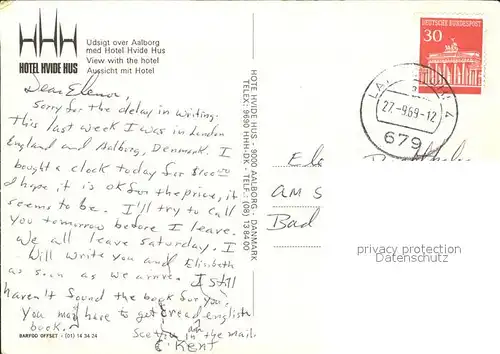 HOTEL HVIDE HUS
Udsigt over Aalborg
med Hotel Hvide Hus
View with the hotel
Aussicht mit Hotel
Dear Elenor,
Sorry for the delay in writing.
This last week I was in London
England and Aalborg, Denmark. I
bought a clock today for
I hope it is ok for the price, it
seems to be. I'll try to call
you tomorrow before I leave.
We all leave saturday. I
Will write you and Elizabeth
as soon as we arrive. I still
haven't found the book for you.
You may have to get read english
book.
See you in the mail.
C. Kent
BARFOD OFFSET - (01) 14 34 24
HOTE HVIDE HUS - 9000 AALBORG - DANMARK
TELEX: 9690 HHH-DK - TELF.: (08) 13 84 00
DEUTSCHE BUNDESPOST
30
27.-9.69-12
679
El
AM S
Bad
privacy protection
Datenschutz